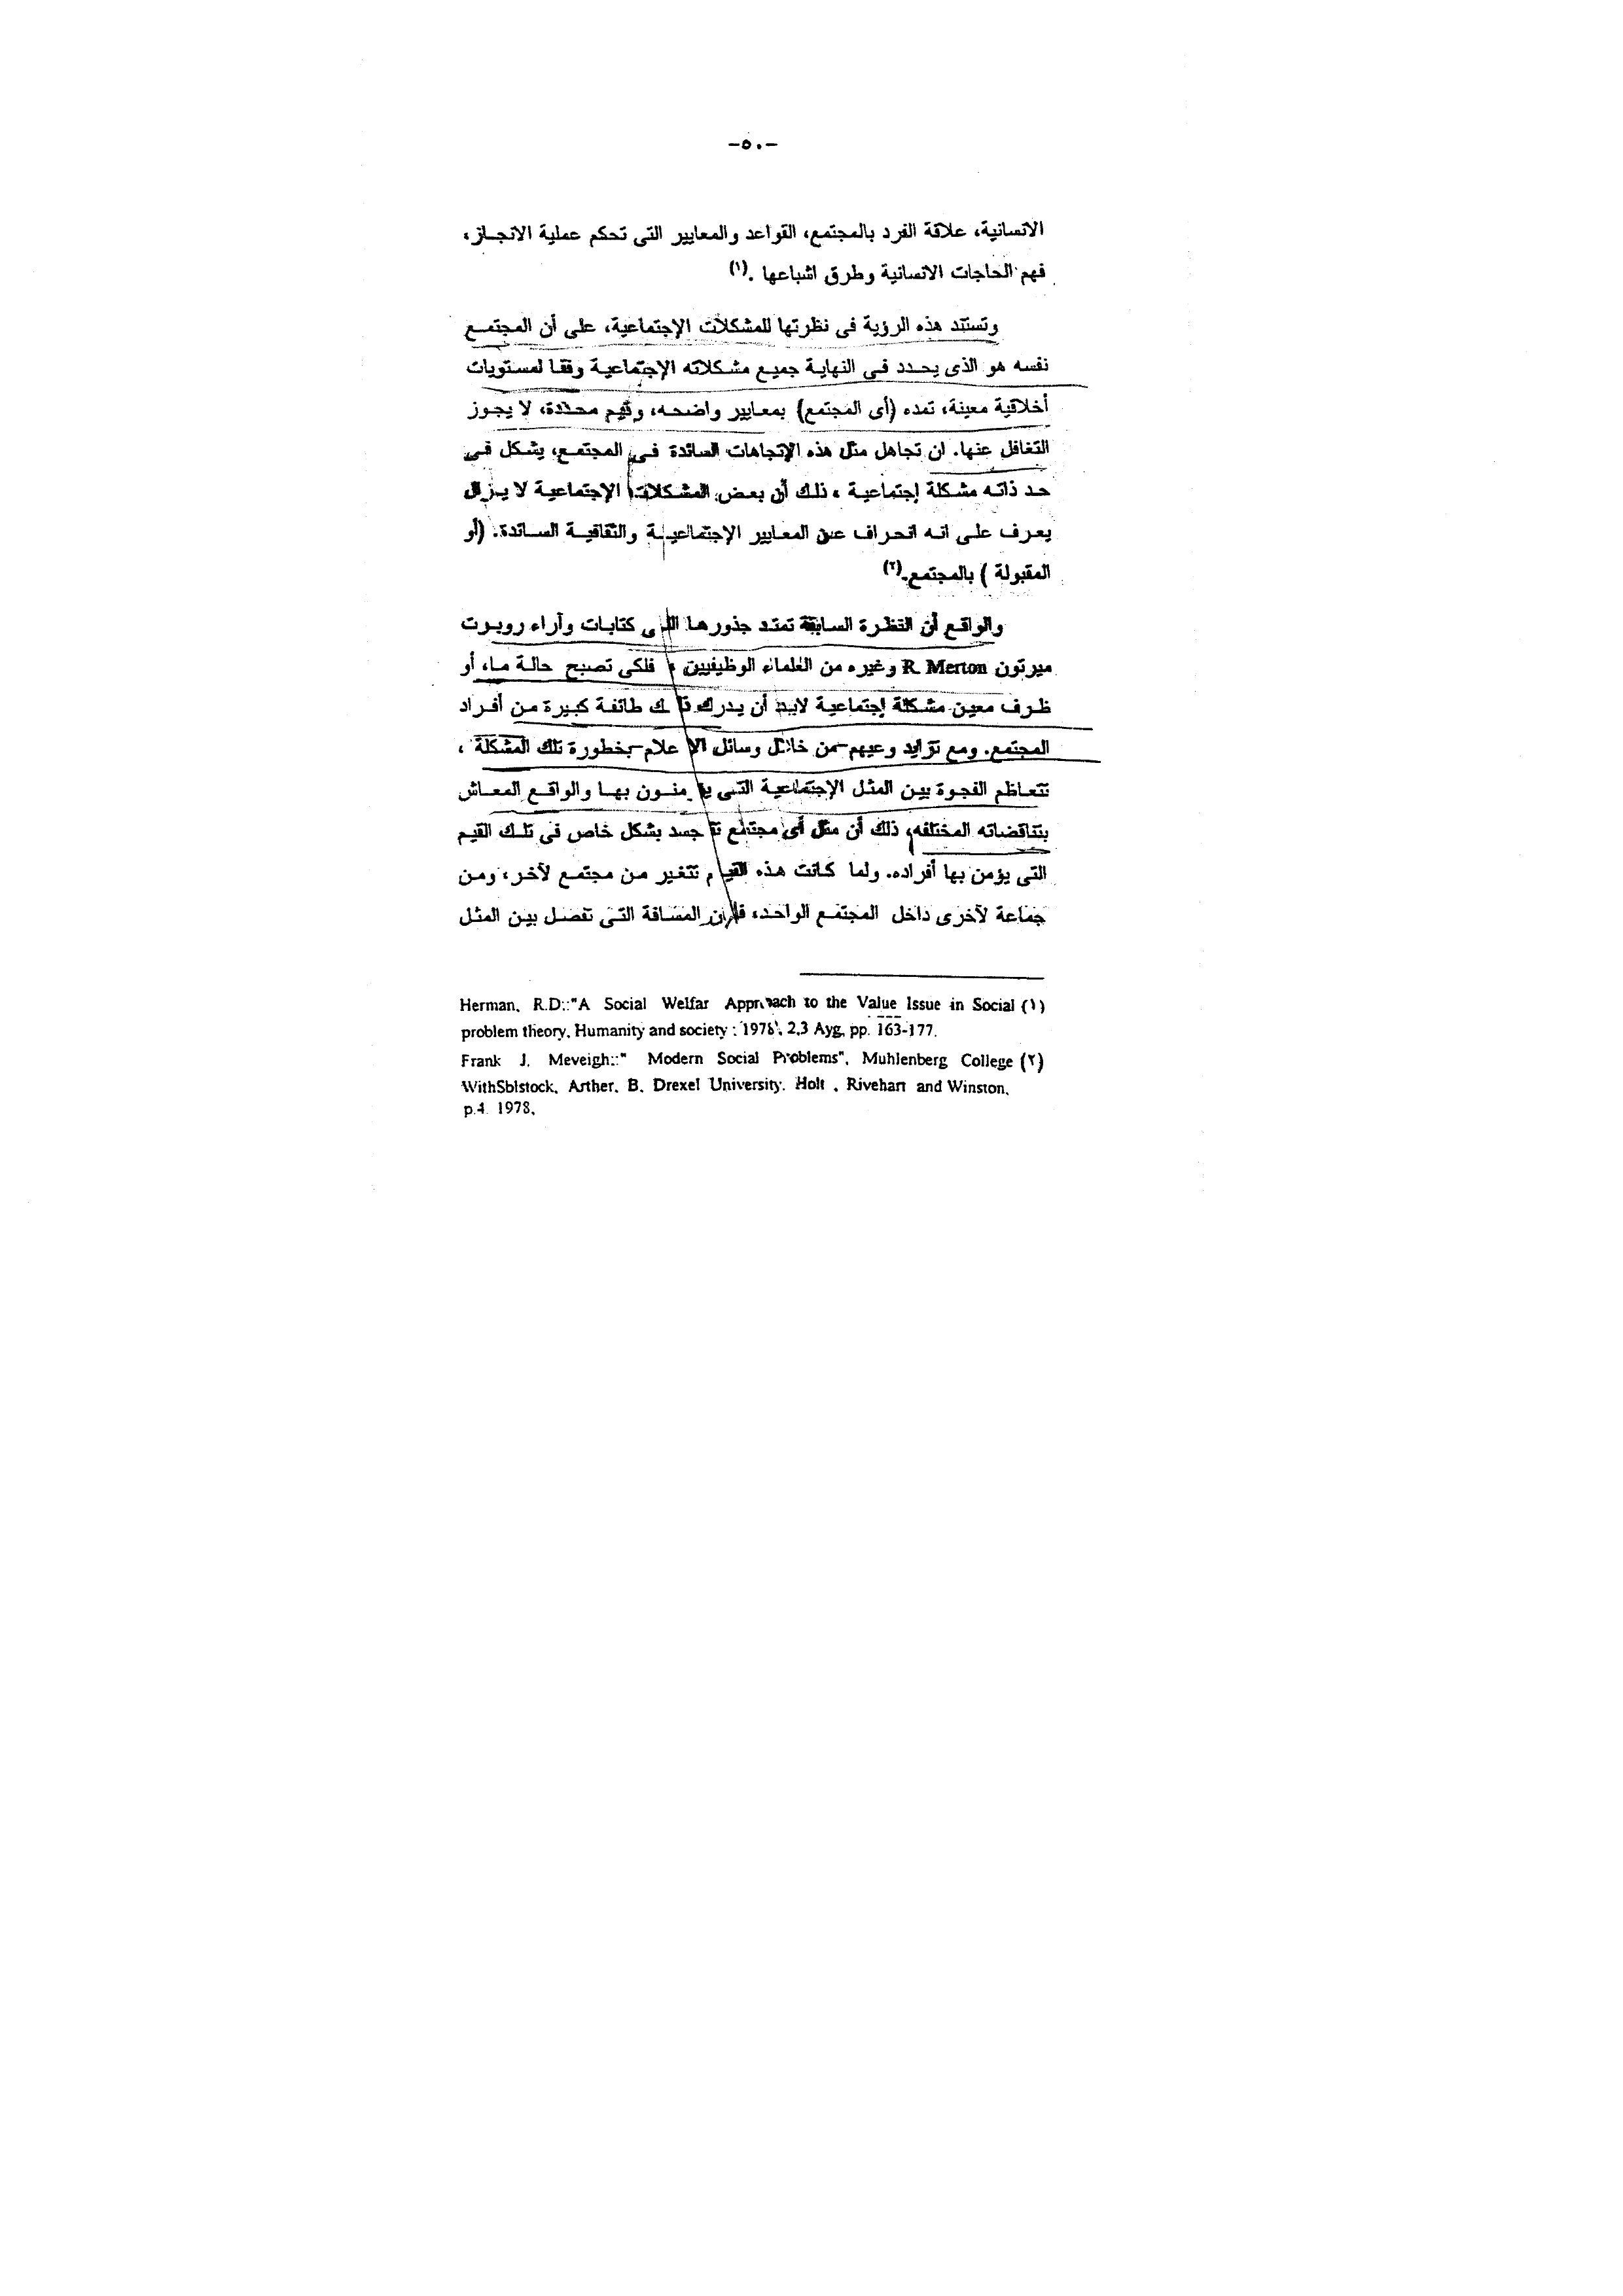 -٥٠-
الانسانية، علاقة الفرد بالمجتمع، القواعد والمعايير التى تحكم عملية الانجاز،
فهم الحاجات الانسانية وطرق اشباعها .(١)
وتستند هذه الرؤية فى نظرتها للمشكلات الإجتماعية، على أن المجتمع
نفسه هو الذى يحدد فى النهاية جميع مشكلاته الإجتماعية وفقا لمستويات
أخلاقية معينة، تمده (أى المجتمع) بمعايير واضحه، وقيم محددة، لا يجوز
التغافل عنها. ان تجاهل مثل هذه الإتجاهات السائدة فى المجتمع، يشكل فى
حد ذاته مشكلة إجتماعية ، ذلك أن بعض المشكلات الإجتماعية لا يزال
يعرف على انه انحراف عن المعايير الإجتماعية والثقافية السائدة. (أو
المقبولة ) بالمجتمع.(٢)
والواقع أن النظرة السابقة تمتد جذورها الى كتابات وأراء روبرت
ميرتون R. Merton وغيره من العلماء الوظيفيين ، فلكى تصبح حالة ما، أو
ظرف معين مشكلة إجتماعية لابد أن يدرك ذلك طائفة كبيرة من أفراد
المجتمع. ومع تزايد وعيهم من خلال وسائل الاعلام بخطورة تلك المشكلة ،
تتعاظم الفجوة بين المثل الإجتماعية التى يؤمنون بها والواقع المعاش
بتناقضاته المختلفه، ذلك أن مثل أى مجتمع تتجسد بشكل خاص فى تلك القيم
التى يؤمن بها أفراده. ولما كانت هذه القيم تتغير من مجتمع لآخر، ومن
جماعة لآخرى داخل المجتمع الواحد، فإن المسافة التى تفصل بين المثل
Herman, R.D.:"A Social Welfar Approach to the Value Issue in Social (١)
problem theory, Humanity and society : 1978, 2,3 Ayg, pp. 163-177.
Frank J. Meveigh:" Modern Social Problems", Muhlenberg College (٢)
WithSblstock, Arther. B. Drexel University. Holt . Rivehart and Winston,
p.4. 1978.